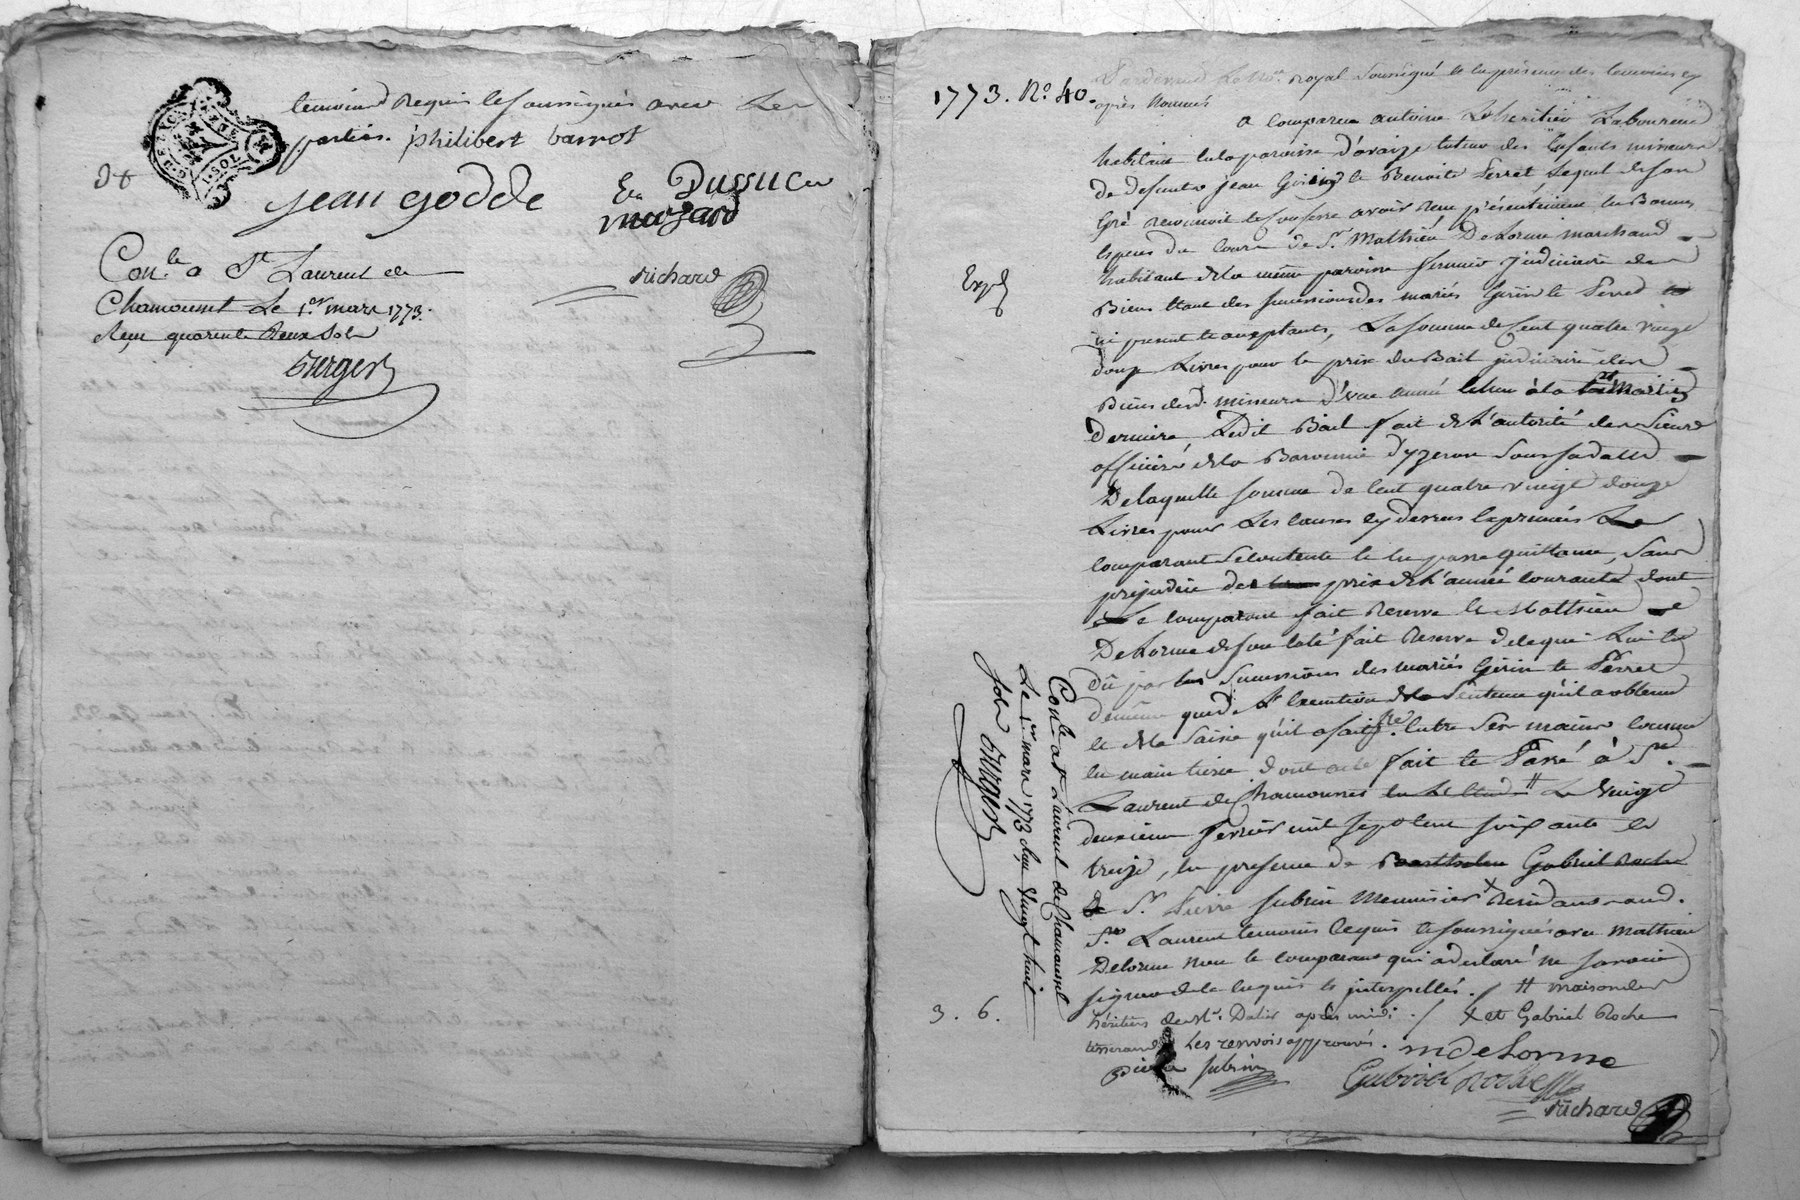 temoins Requis et soussignés avec Les
parties. philibert barrot
jean godde
Dussuc
mazard
richard
Con.le a St Laurent de
Chamousset Le 1.er mars 1773.
Reçu quarente Deux Sols
Berger
1773. No. 40.
Pardevant Le No.re Royal Soussigné et en présence des temoins cy
après Nommés
a comparu antoine Lheritier Laboureur
habitant en la paroisse d'avaize tuteur des Enfants mineurs
de deffunts jean Gerin et Benoite Perret Lequel de son
Gré reconnoit et confesse avoir reçu présentement en Bonnes
Especes du cours de Sr. Mathieu Delorme marchand
habitant de la même paroisse fermier judiciaire des
Biens étant des successions des mariés Gerin et Perret
ici present et acceptants, La somme de Cent quatre vingt
douze Livres pour le prix du Bail judiciaire des
Biens desd. mineurs d'une année échue à la St Martin
derniere, Ledit Bail fait de L'autorité des Sieurs
officiers de la Baronnie d'yzeron sous sa datte
De laquelle somme de Cent quatre vingt douze
Livres pour Les causes cy dessus Exprimées Le
comparant se contente et en passe quittance, sans
préjudice des prix de L'année courante dont
Le comparant fait reserve et Mathieu
Delorme de son coté fait reserve de ce qui Lui est
Dû par les Successions des mariés Gérin et Perret
de même que de L'execution de la Sentence qu'il a obtenue
et de la Saisie qu'il a fait faire Entre Ses mains comme
en main tierce. dont acte fait et Passé à St.
Laurent de Chamousset Le vingt
deuxieme fevrier mil sept cent soixante et
treize, en presence de Gabriel Roche
Sr. Pierre Subrin Menuisier residants aud.
St. Laurent temoins requis et soussignés avec Mathieu
Delorme Non le comparant qui a declaré ne savoir
signer de ce enquis et interpellés. / # maison des
héritiers de Mr. Dalis après midi. / X et Gabriel Roche
tisserand Les renvois approuvés. mDelorme
Pierre Subrin
Gabriel roche
Richard
Expd
Con.le a St Laurent de Chamousset
Le 1er mars 1773 Reçu vingt huit
sols Berger
3. 6.